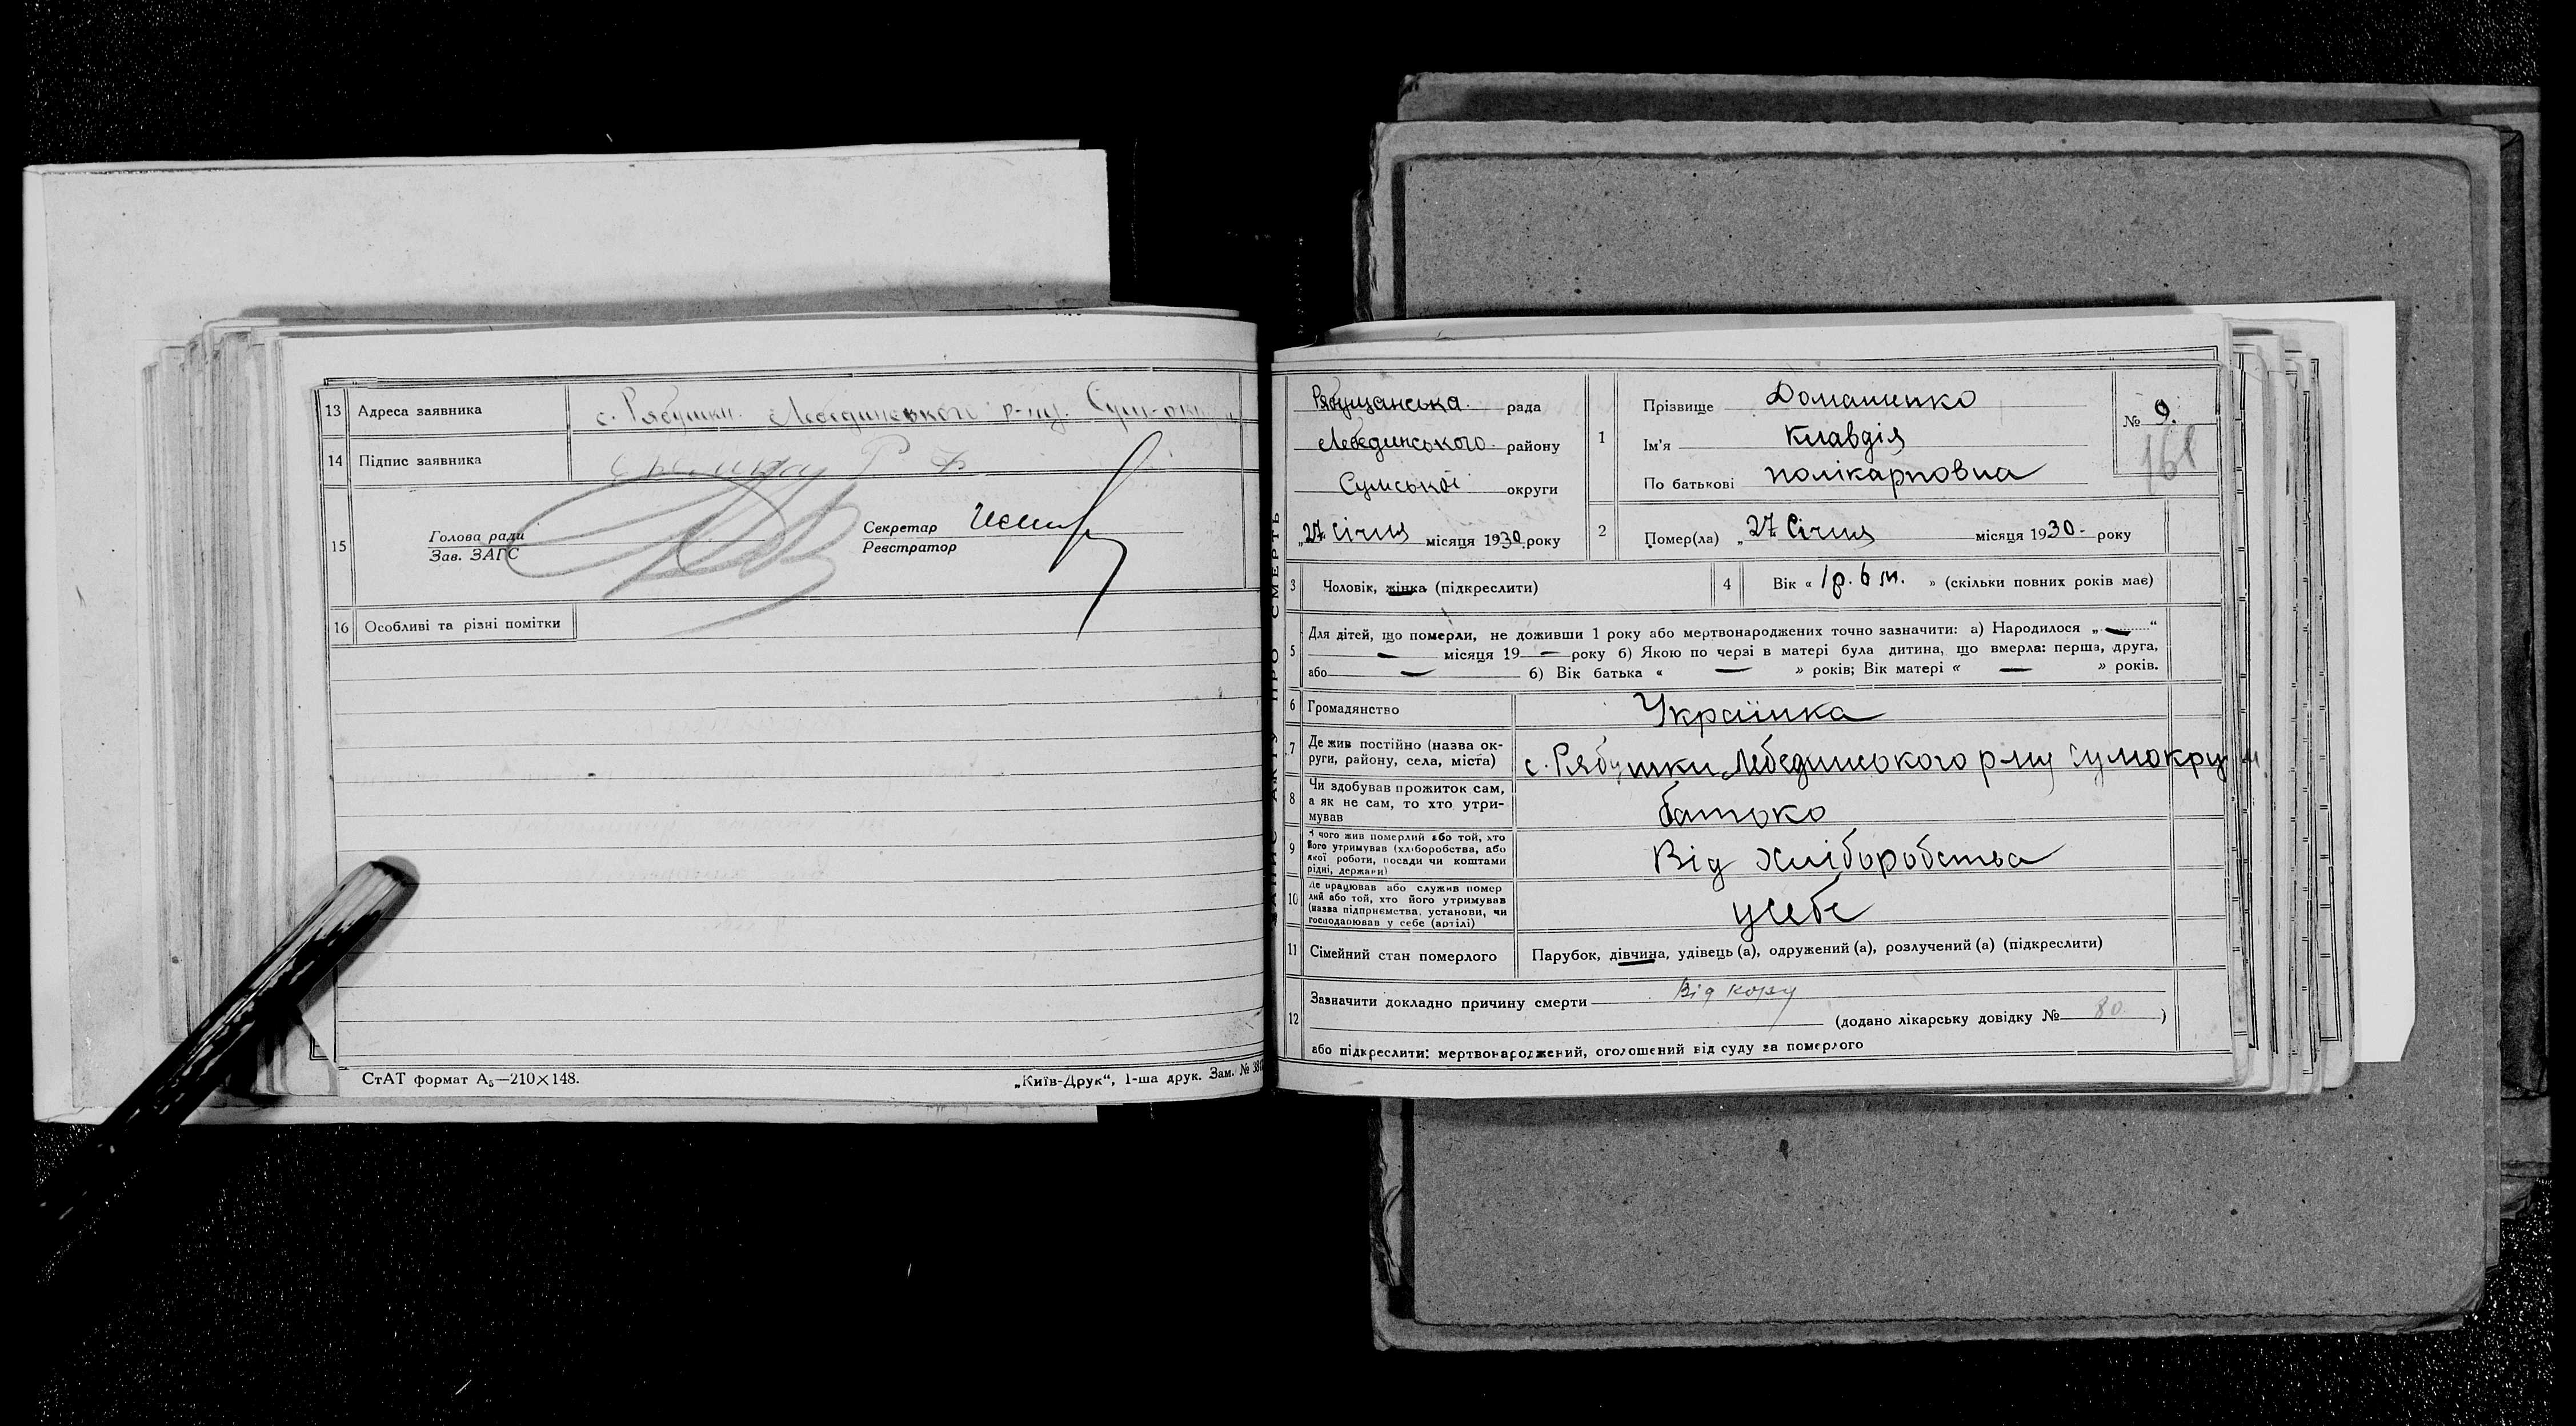 13 Адреса заявника с. Рябушки Лебединського р-ну. Сум-окр
14 Підпис заявника
15 Голова ради
Зав. ЗАГС
Секретар
Реєстратор
16 Особливі та різні помітки
СтАТ формат А₅—210×148.
„Київ-Друк“, 1-ша друк. Зам. №
ЗАПИС АКТУ ПРО СМЕРТЬ
Рябущанська рада
Лебединського району
Сумської округи
„27“ Січня місяця 1930 року
1 Прізвище Доманенко
Ім'я Клавдія
По батькові полікарповна
№ 9.
161
2 Помер(ла) „27 Січня місяця 1930- року
3 Чоловік, жінка (підкреслити)
4 Вік « 1р. 6 м. » (скільки повних років має)
5 Для дітей, що померли, не доживши 1 року або мертвонароджених точно зазначити: а) Народилося „ — “
— місяця 19 — року б) Якою по черзі в матері була дитина, що вмерла: перша, друга,
або — б) Вік батька « — » років; Вік матері « — » років.
6 Громадянство Українка
7 Де жив постійно (назва ок-
руги, району, села, міста) с. Рябушки Лебединського р-ну Сумокруги
8 Чи здобував прожиток сам,
а як не сам, то хто утри-
мував батько
9 З чого жив померлий або той, хто
його утримував (хліборобства, або
якої роботи, посади чи коштами
рідні, держави) Від хліборобства
10 Де працював або служив помер
лий або той, хто його утримував
(назва підприємства, установи, чи
господарював у себе (артілі) усебе
11 Сімейний стан померлого Парубок, дівчина, удівець (а), одружений (а), розлучений (а) (підкреслити)
12 Зазначити докладно причину смерти Від кору
(додано лікарську довідку № 80 )
або підкреслити: мертвонароджений, оголошений від суду за померлого